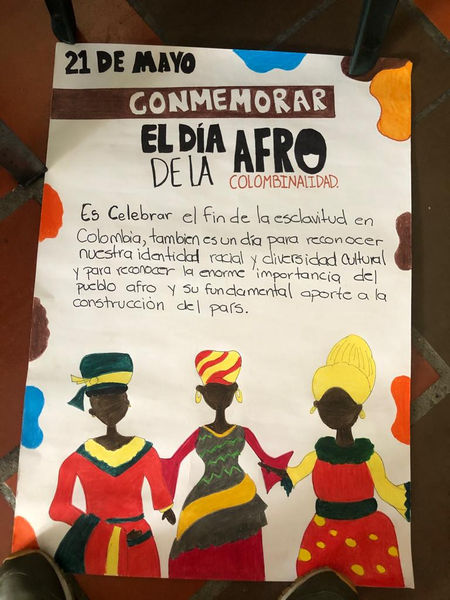 21 DE MAYO
CONMEMORAR
EL DÍA
DE LA AFRO
COLOMBINALIDAD.
Es Celebrar el fin de la esclavitud en
Colombia, tambien es un día para reconocer
nuestra identidad racial y diversidad cultural
y para reconocer la enorme importancia del
pueblo afro y su fundamental aporte a la
construcción del país.